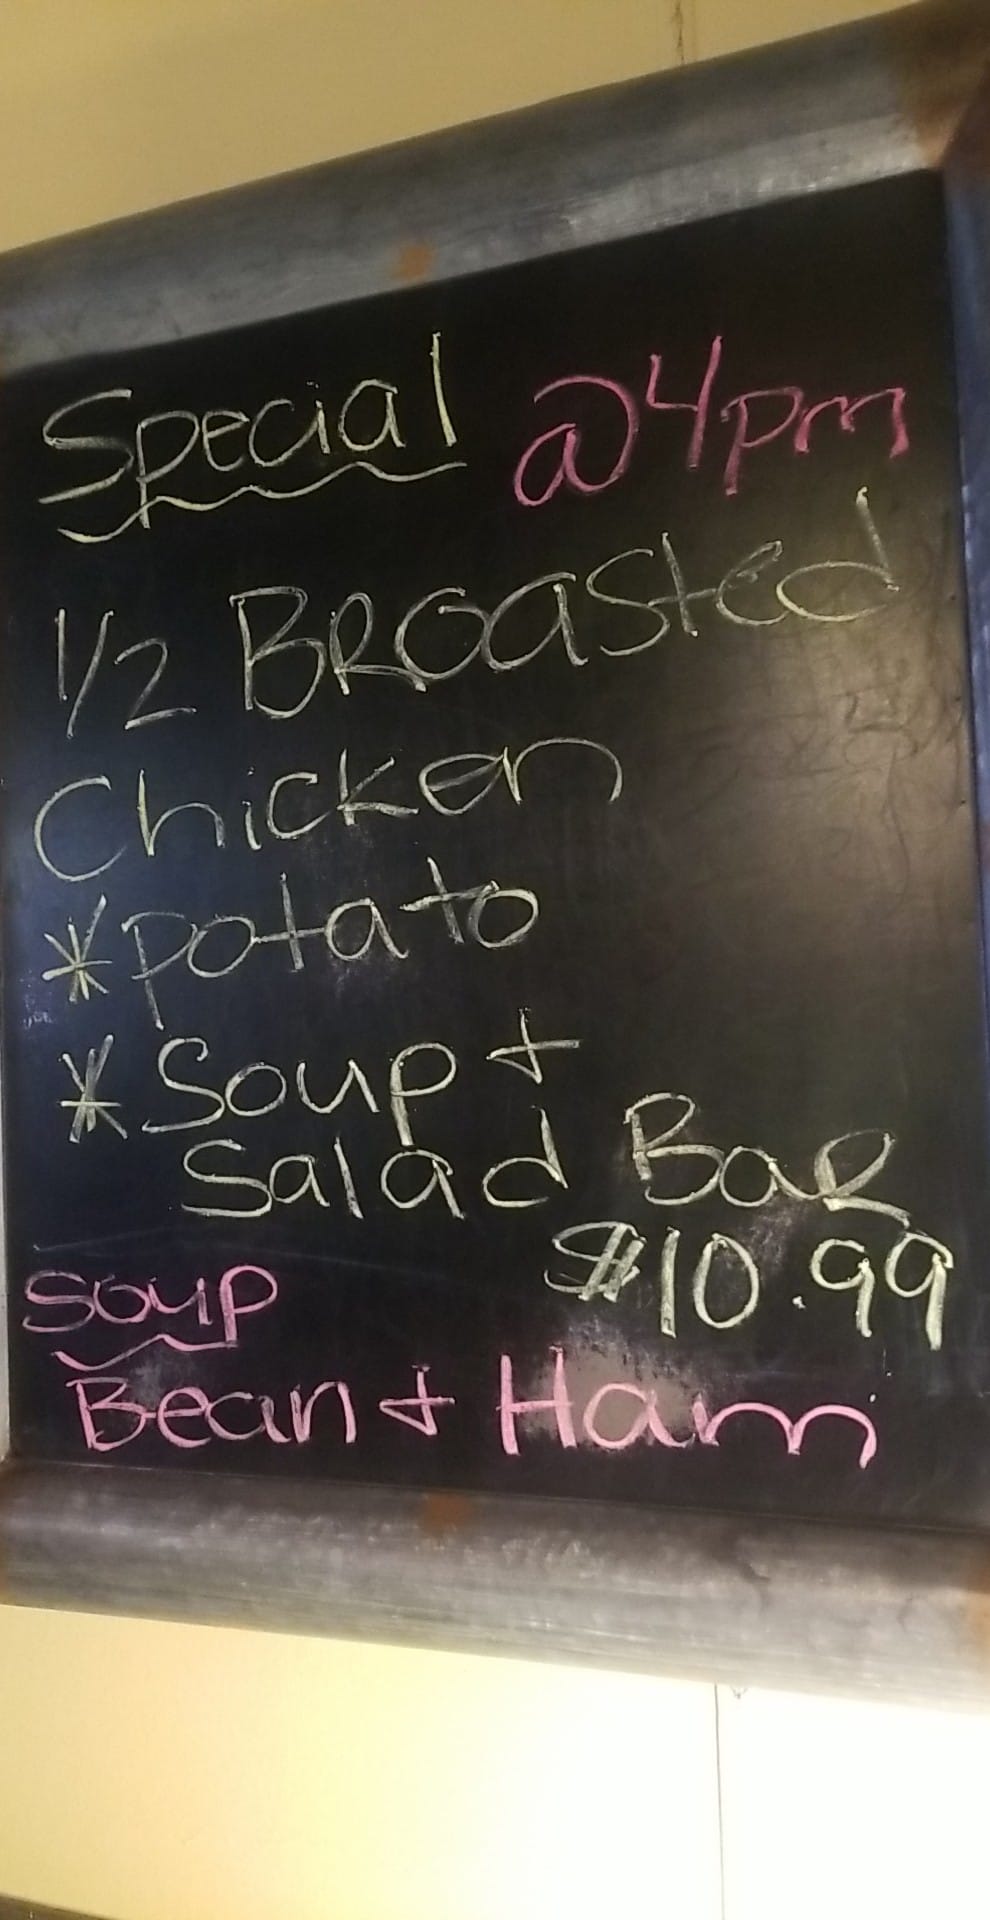 Special @4pm
1/2 BRoasted
Chicken
*potato
*Soup +
Salad BaR
$10.99
Soup
Bean + Ham